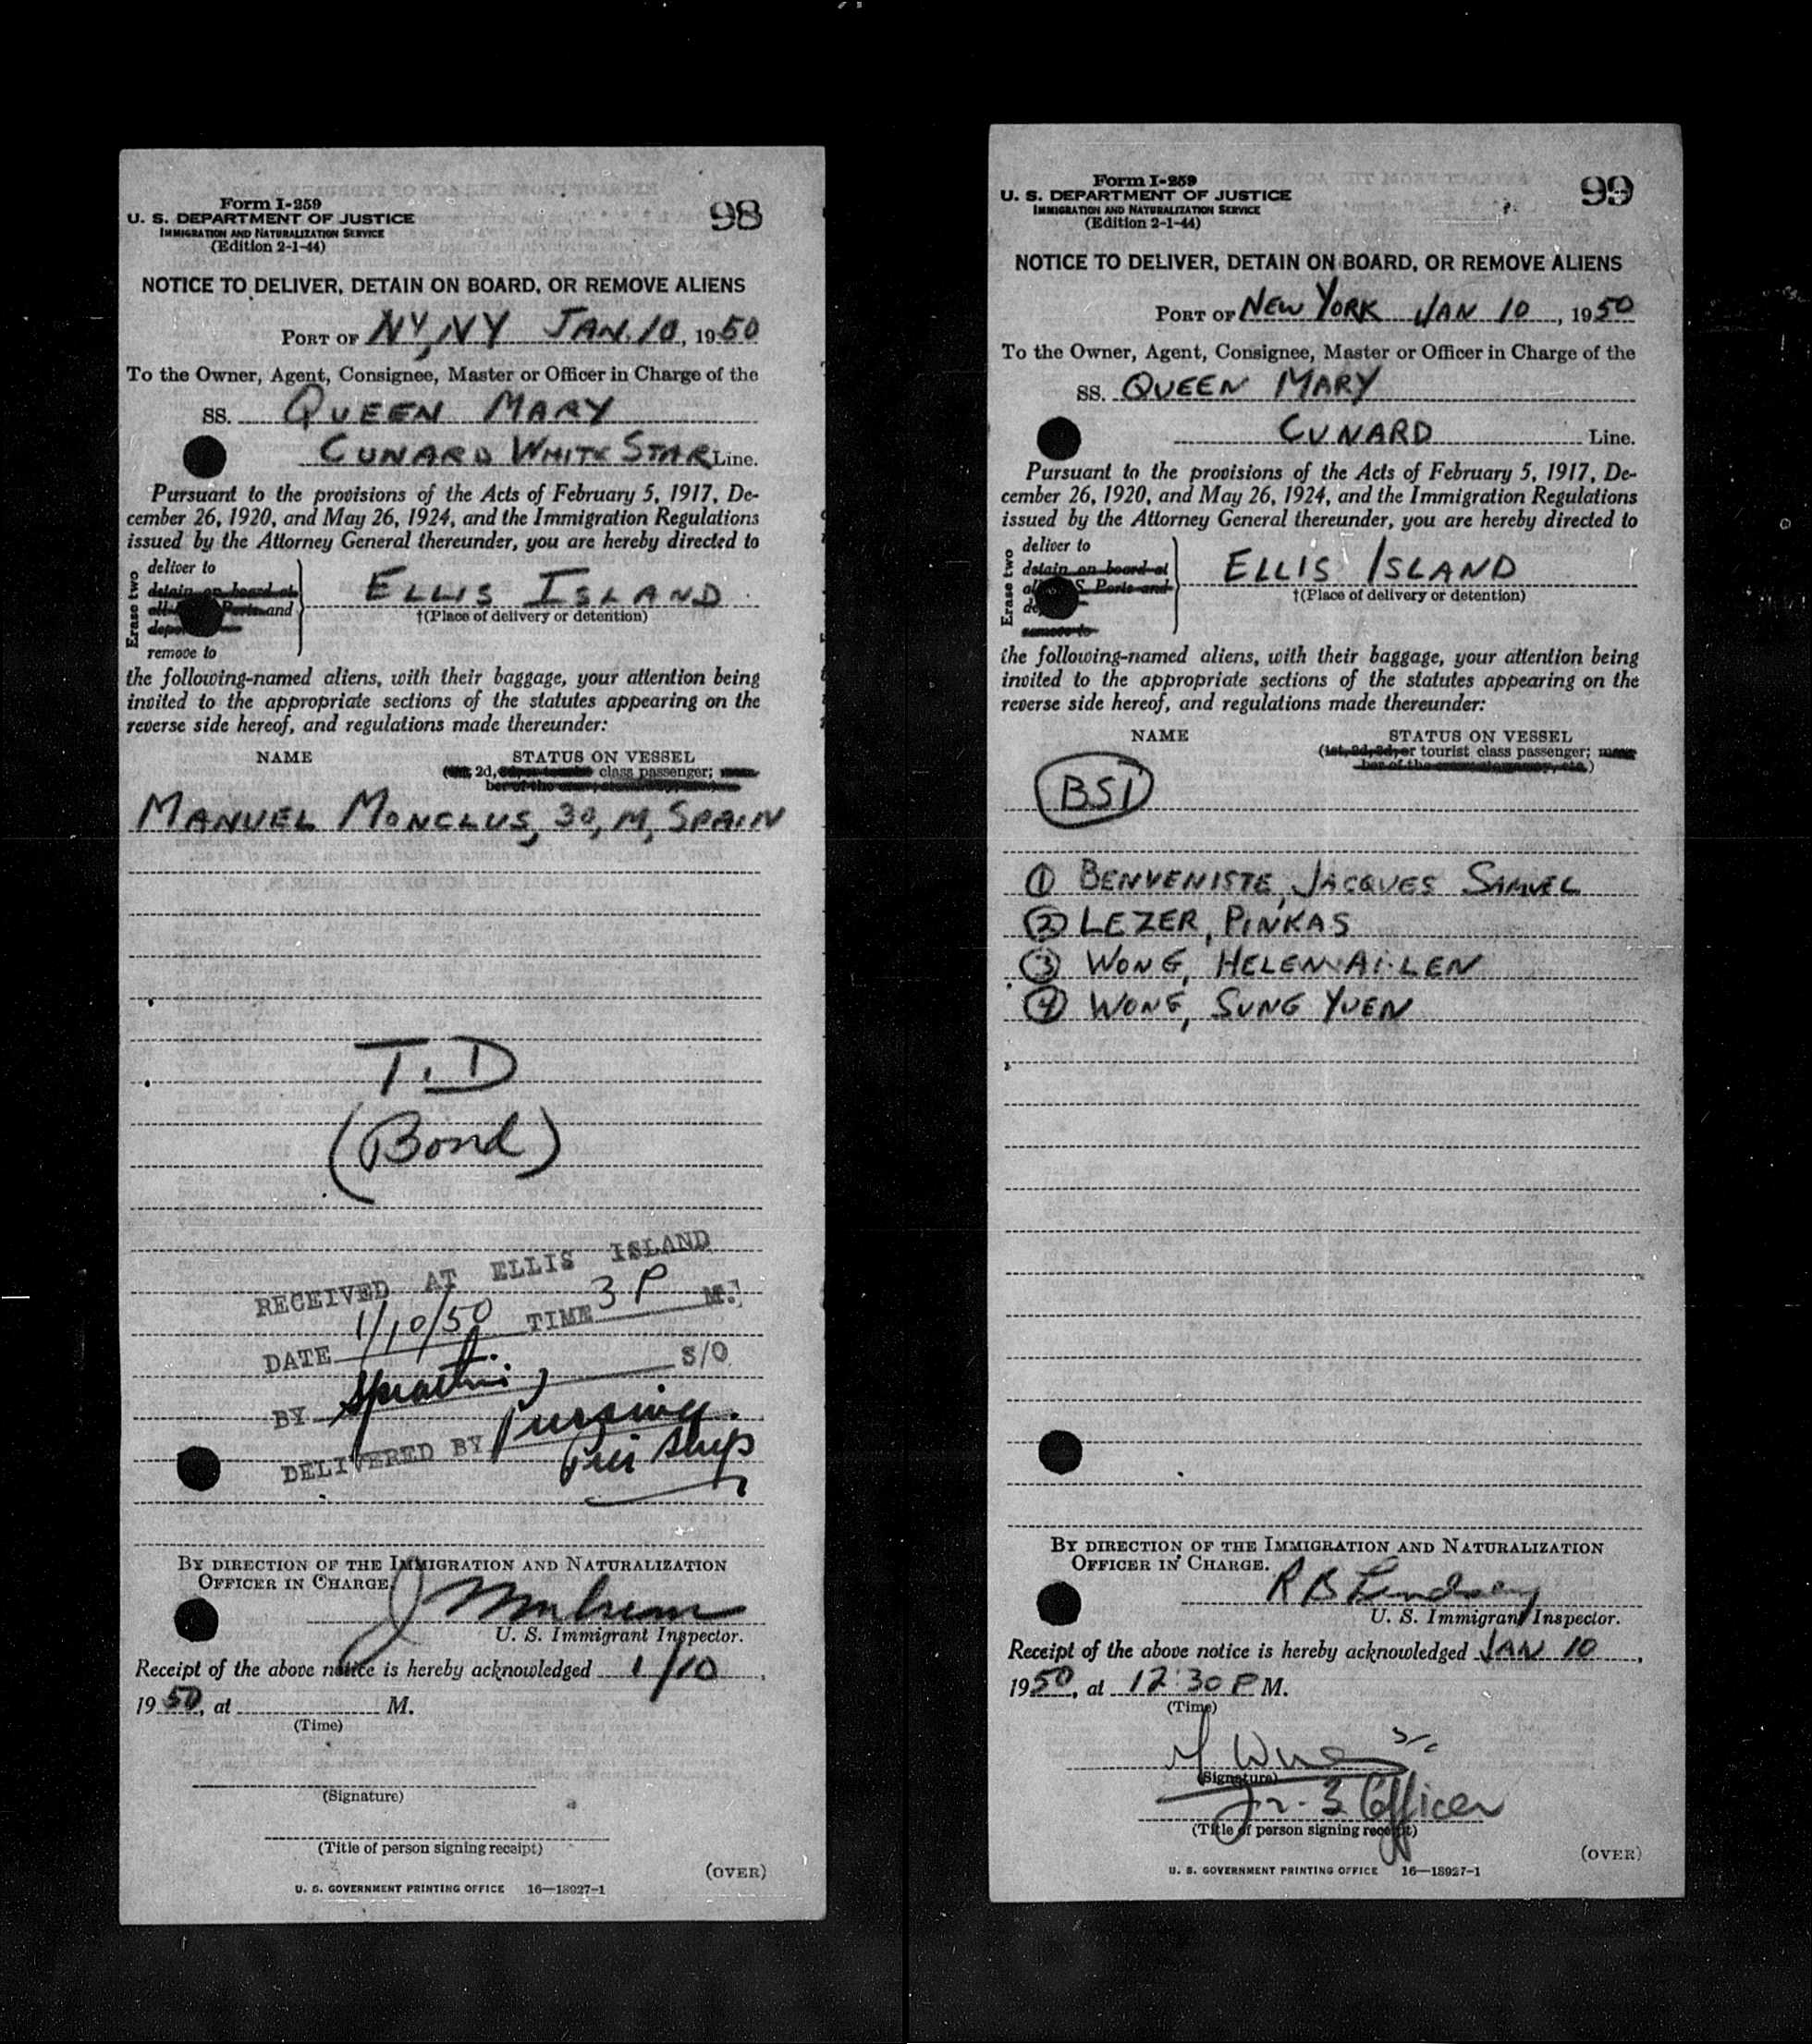 Form I-259
U. S. DEPARTMENT OF JUSTICE
IMMIGRATION AND NATURALIZATION SERVICE
(Edition 2-1-44)
98
NOTICE TO DELIVER, DETAIN ON BOARD, OR REMOVE ALIENS
PORT OF NY, NY JAN. 10, 1950
To the Owner, Agent, Consignee, Master or Officer in Charge of the
SS. QUEEN MARY
CUNARD WHITE STAR Line.
Pursuant to the provisions of the Acts of February 5, 1917, De-
cember 26, 1920, and May 26, 1924, and the Immigration Regulations
issued by the Attorney General thereunder, you are hereby directed to
Erase two
deliver to
detain on board at
all Ports and
remove to
ELLIS ISLAND
†(Place of delivery or detention)
the following-named aliens, with their baggage, your attention being
invited to the appropriate sections of the statutes appearing on the
reverse side hereof, and regulations made thereunder:
NAME STATUS ON VESSEL
2d, class passenger;
MANUEL MONCLUS, 30, M, SPAIN
T.D
(Bond)
RECEIVED AT ELLIS ISLAND
DATE 1/10/50 TIME 3 P M.
BY S/O
DELIVERED BY
BY DIRECTION OF THE IMMIGRATION AND NATURALIZATION
OFFICER IN CHARGE.
U. S. Immigrant Inspector.
Receipt of the above notice is hereby acknowledged 1/10,
1950, at M.
(Time)
(Signature)
(Title of person signing receipt)
(OVER)
U. S. GOVERNMENT PRINTING OFFICE 16—18927-1
Form I-259
U. S. DEPARTMENT OF JUSTICE
IMMIGRATION AND NATURALIZATION SERVICE
(Edition 2-1-44)
99
NOTICE TO DELIVER, DETAIN ON BOARD, OR REMOVE ALIENS
PORT OF NEW YORK JAN 10, 1950
To the Owner, Agent, Consignee, Master or Officer in Charge of the
SS. QUEEN MARY
CUNARD Line.
Pursuant to the provisions of the Acts of February 5, 1917, De-
cember 26, 1920, and May 26, 1924, and the Immigration Regulations
issued by the Attorney General thereunder, you are hereby directed to
Erase two
deliver to
detain on board at
S. Ports and
remove to
ELLIS ISLAND
†(Place of delivery or detention)
the following-named aliens, with their baggage, your attention being
invited to the appropriate sections of the statutes appearing on the
reverse side hereof, and regulations made thereunder:
NAME STATUS ON VESSEL
(1st, 2d, 3d, or tourist class passenger; mem-
ber of the crew, stowaway, etc.)
BSI
1 BENVENISTE, JACQUES SAMUEL
2 LEZER, PINKAS
3 WONG, HELEN AI-LEN
4 WONG, SUNG YUEN
BY DIRECTION OF THE IMMIGRATION AND NATURALIZATION
OFFICER IN CHARGE.
R B Lindsay
U. S. Immigrant Inspector.
Receipt of the above notice is hereby acknowledged JAN 10,
1950, at 12:30 P M.
(Time)
(Signature)
Jr. 3 Officer
(Title of person signing receipt)
(OVER)
U. S. GOVERNMENT PRINTING OFFICE 16—18927-1